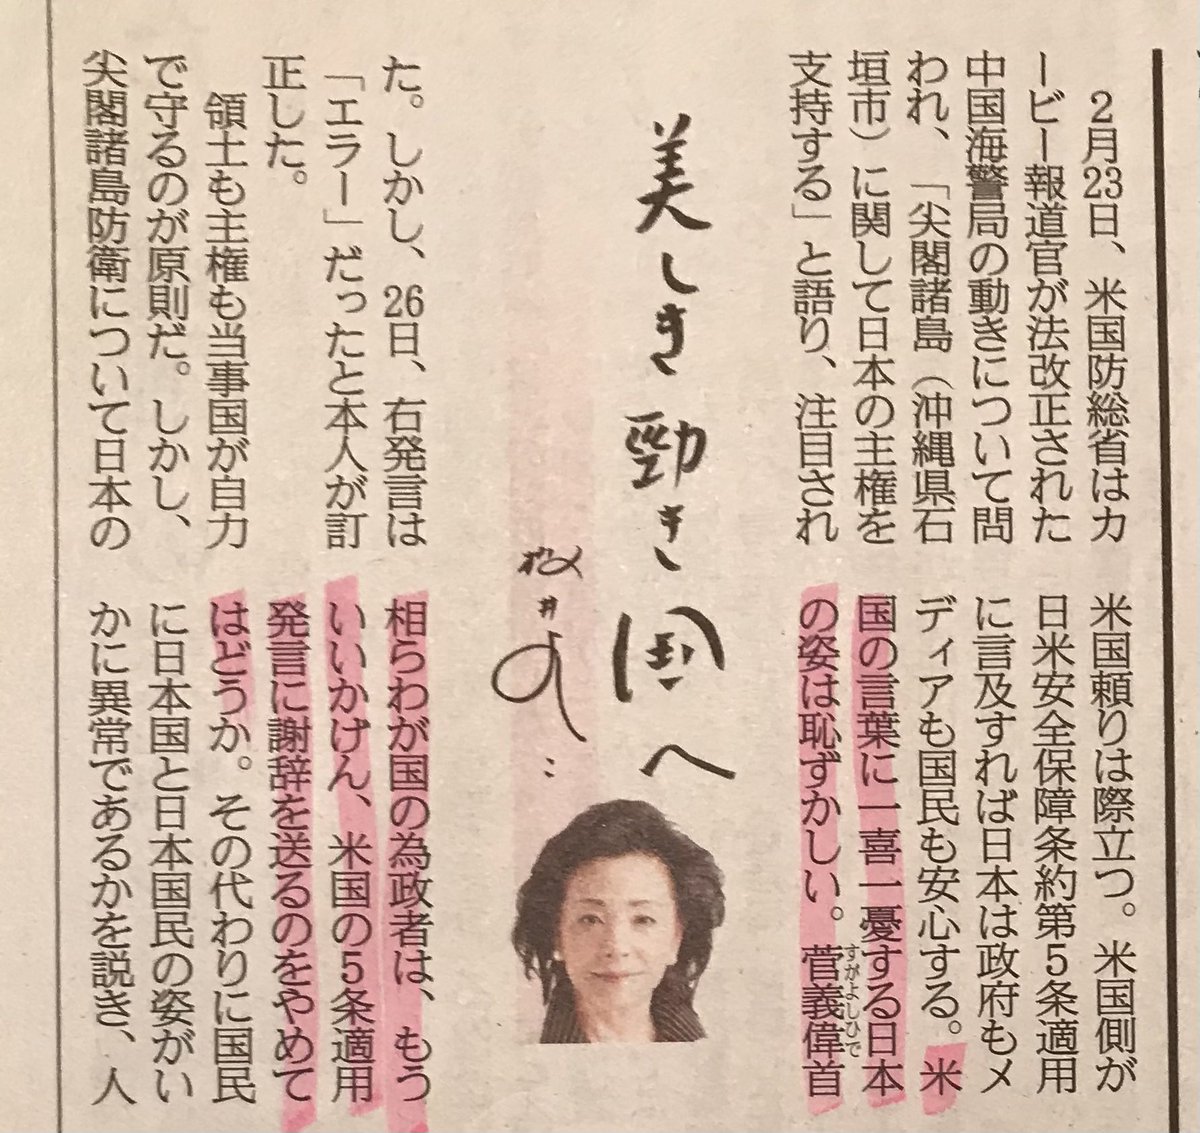 美しき勁き国へ
2月23日、米国防総省はカ
ービー報道官が法改正された
中国海警局の動きについて問
われ、「尖閣諸島(沖縄県石
垣市)に関して日本の主権を
支持する」と語り、注目され
た。しかし、26日、右発言は
「エラー」だったと本人が訂
正した。
領土も主権も当事国が自力
で守るのが原則だ。しかし、
尖閣諸島防衛について日本の
米国頼りは際立つ。米国側が
日米安全保障条約第5条適用
に言及すれば日本は政府もメ
ディアも国民も安心する。米
国の言葉に一喜一憂する日本
の姿は恥ずかしい。菅義偉首
すがよしひで
相らわが国の為政者は、もう
いいかげん、米国の5条適用
発言に謝辞を送るのをやめて
はどうか。その代わりに国民
に日本国と日本国民の姿がい
かに異常であるかを説き、人